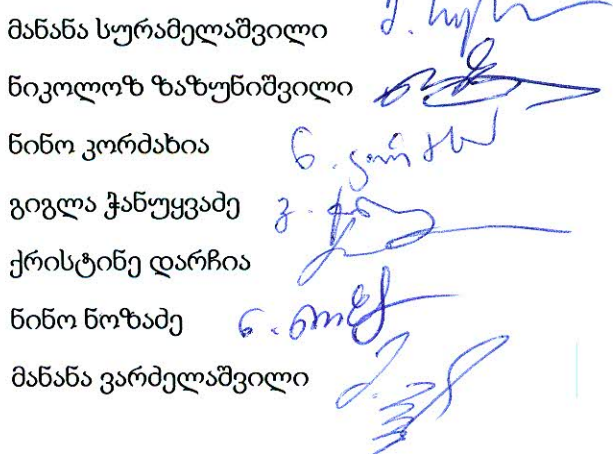 მანანა სურამელაშვილი
ნიკოლოზ ზაზუნიშვილი
ნინო კორძახია
გიგლა ჭანუყვაძე
ქრისტინე დარჩია
ნინო ნოზაძე
მანანა ვარძელაშვილი